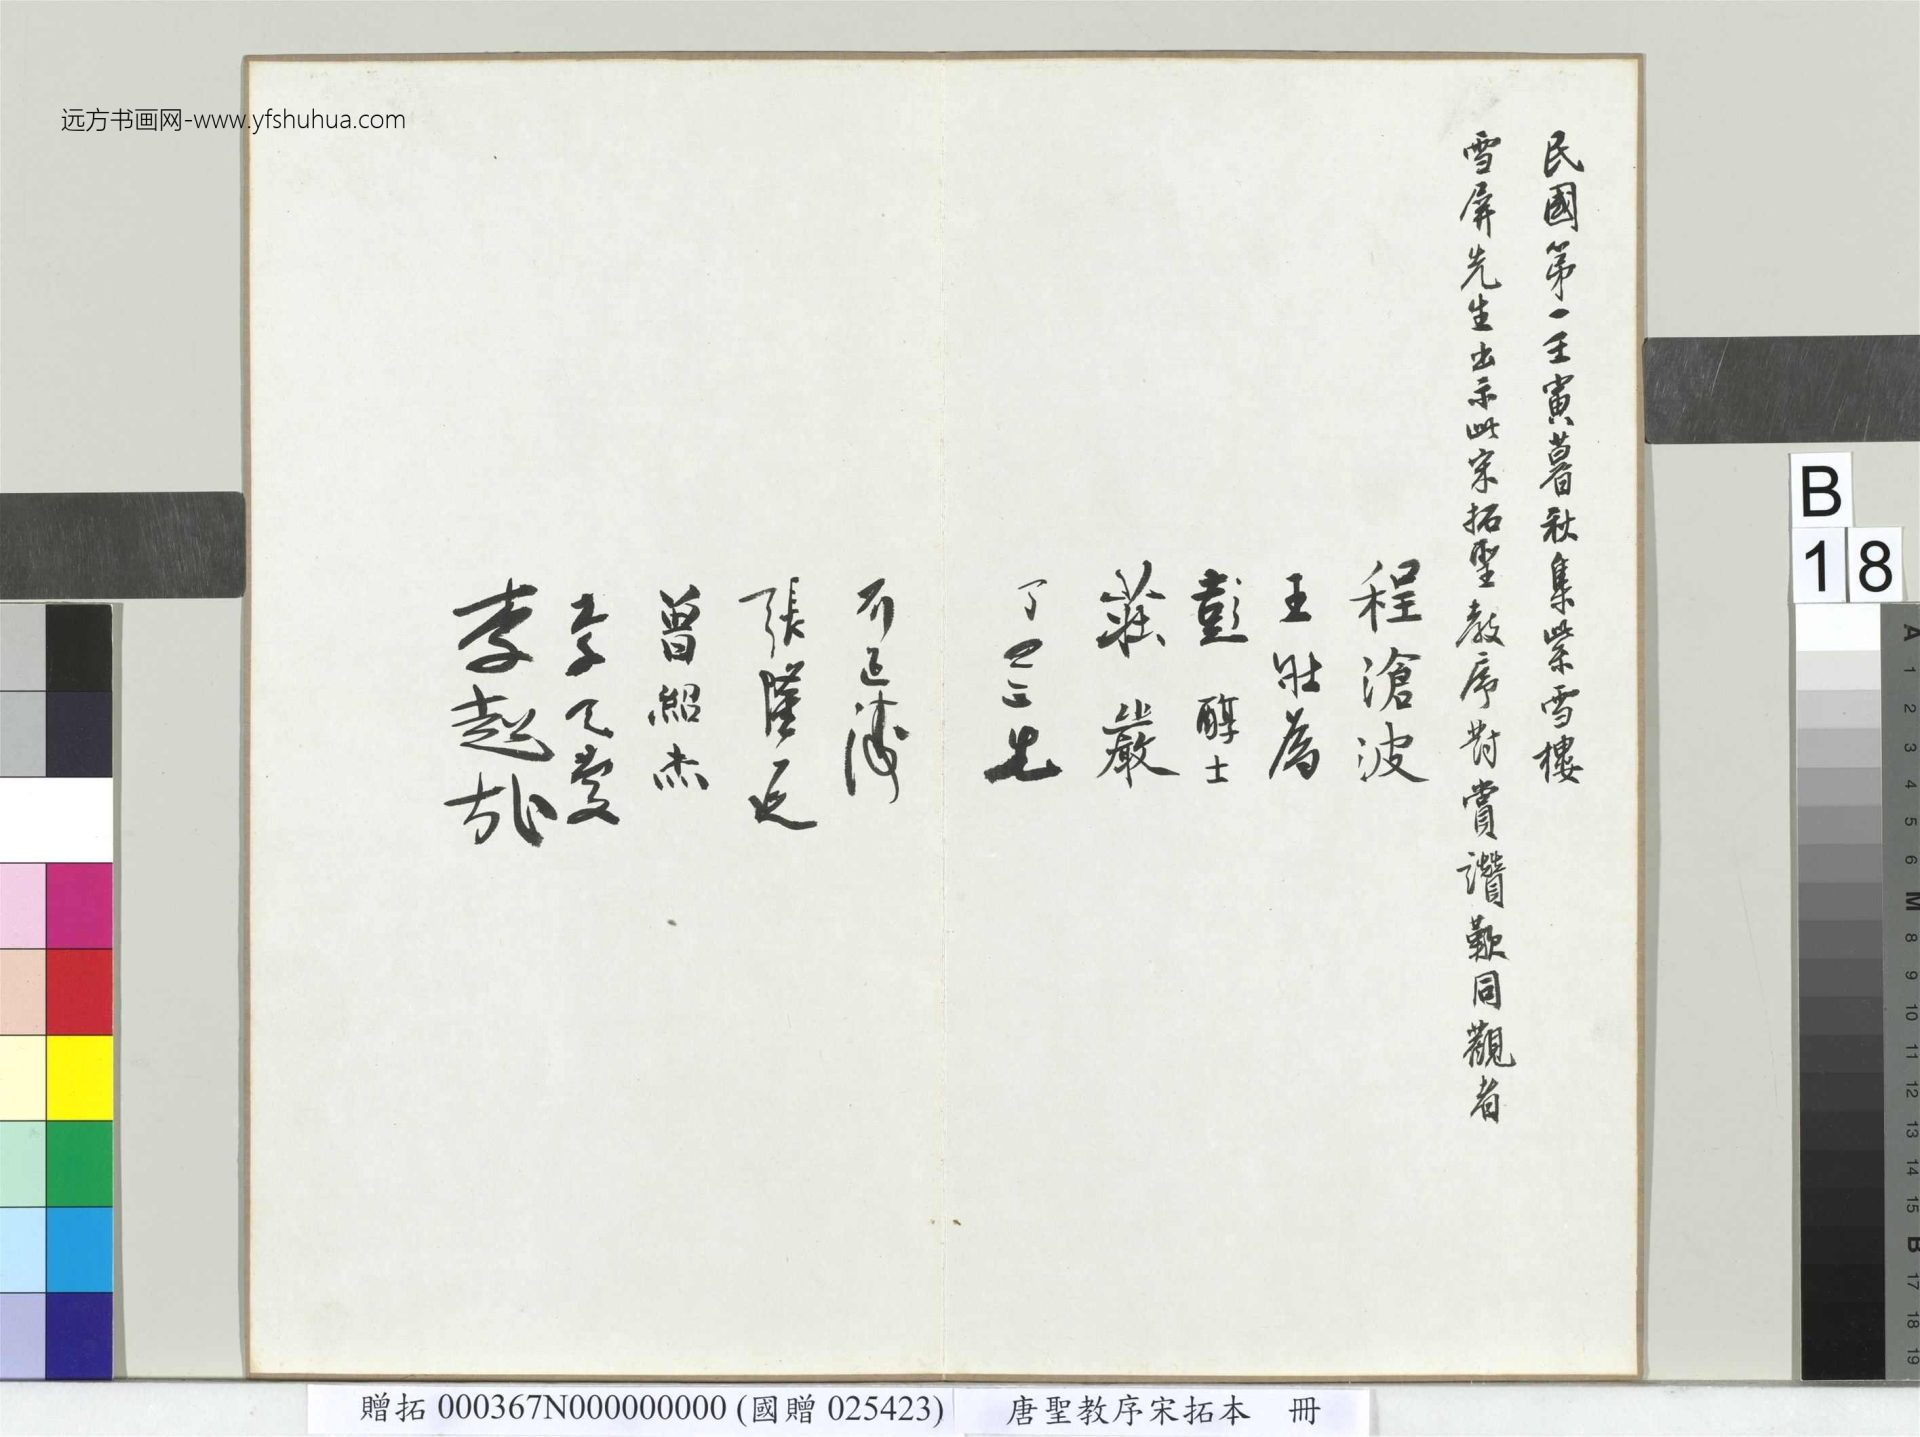 远方书画网-www.yfshuhua.com
民國第一壬寅暮秋集紫雪樓
雪屏先生出示此宋拓聖教序對賞讚歎同觀者
程滄波
王壯為
彭醇士
莊嚴
丁
張隆延
曾紹杰
李天
李超哉
B
18
A
1
2
3
4
5
6
M
8
9
10
11
12
13
14
15
B
17
18
19
贈拓 000367N000000000 (國贈 025423)
唐聖教序宋拓本 冊